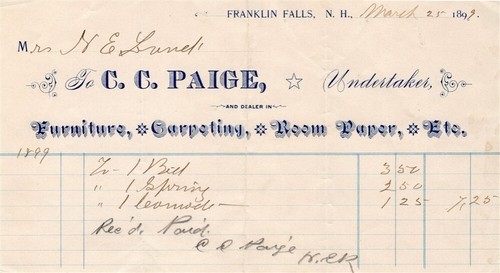 FRANKLIN FALLS, N. H., March 25 1899.
Mrs N E Lund
To C. C. PAIGE, Undertaker,
AND DEALER IN
Furniture, Carpeting, Room Paper, Etc.
1899
To 1 Bed 3 50
" 1 Spring 2 50
" 1 Comode 1 25 7,25
Rec'd Paid.
C C Paige